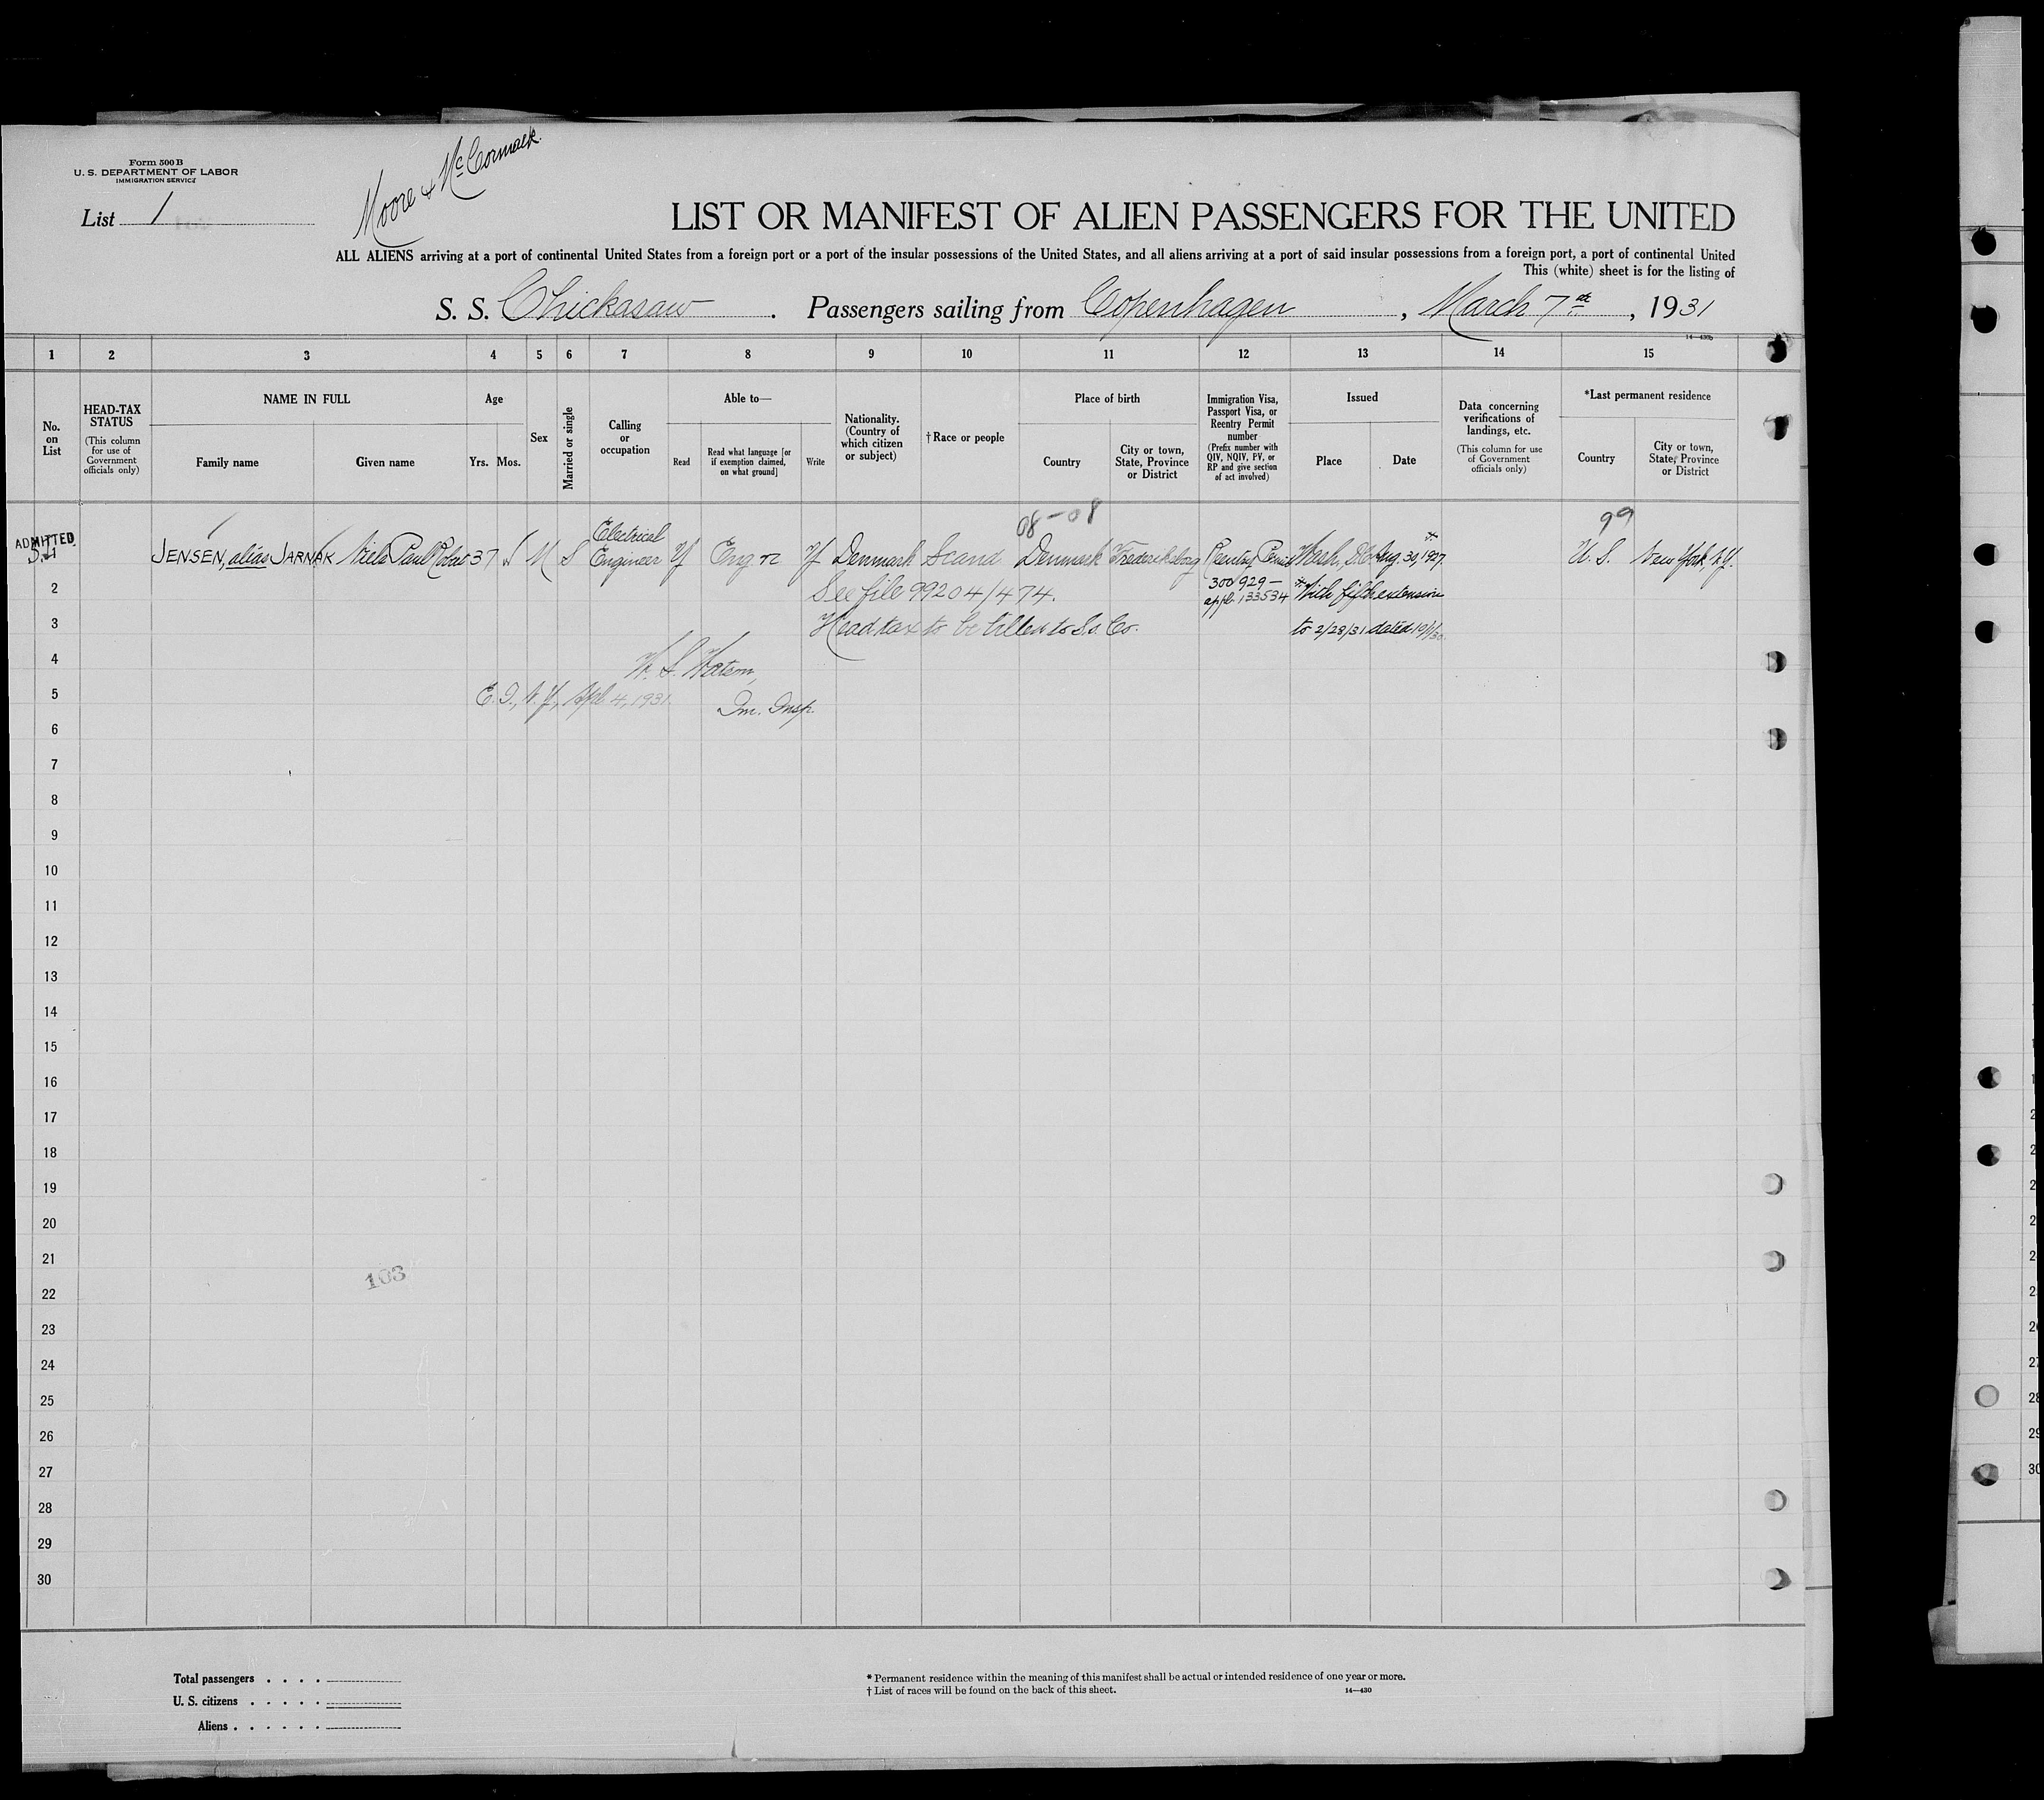 Form 500 B
U. S. DEPARTMENT OF LABOR
IMMIGRATION SERVICE
List 1
Moore & McCormack.
LIST OR MANIFEST OF ALIEN PASSENGERS FOR THE UNITED
ALL ALIENS arriving at a port of continental United States from a foreign port or a port of the insular possessions of the United States, and all aliens arriving at a port of said insular possessions from a foreign port, a port of continental United
This (white) sheet is for the listing of
S. S. Chickasaw . Passengers sailing from Copenhagen , March 7th , 1931
14—430b
1 2 3 4 5 6 7 8 9 10 11 12 13 14 15
No. on List
HEAD-TAX STATUS
(This column for use of Government officials only)
NAME IN FULL
Family name
Given name
Age
Yrs. Mos.
Sex
Married or single
Calling or occupation
Able to—
Read
Read what language [or if exemption claimed, on what ground]
Write
Nationality. (Country of which citizen or subject)
†Race or people
Place of birth
Country
City or town, State, Province or District
Immigration Visa, Passport Visa, or Reentry Permit number
(Prefix number with QIV, NQIV, PV, or RP and give section of act involved)
Issued
Place
Date
Data concerning verifications of landings, etc.
(This column for use of Government officials only)
*Last permanent residence
Country
City or town, State, Province or District
08-08
99
ADMITTED
1 JENSEN, alias JARNAK Niels Paul 37 M S Electrical Engineer Y Eng. Y Denmark Scand Denmark Frederiksborg Reentry Permit Wash, D.C. Aug. 30, 1927. U. S. New York, N.Y.
300929—
2 See file 99204/474. appl. 133534 * With fifth extension
3 Head tax to be billed to S.S. Co. to 2/28/31 dated
4 Watson,
5 E. I., N. Y., Apl. 4, 1931. Im. Insp.
6
7
8
9
10
11
12
13
14
15
16
17
18
19
20
21
103
22
23
24
25
26
27
28
29
30
Total passengers . . . .
U. S. citizens . . . . .
Aliens . . . . . .
* Permanent residence within the meaning of this manifest shall be actual or intended residence of one year or more.
† List of races will be found on the back of this sheet.
14—430